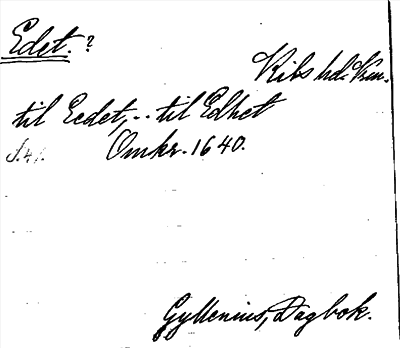 Edet. ?
Kils hd. Vrm.
til Eedet, -- til Edhet
S. 41. Omkr. 1640.
Gyllenius, Dagbok.